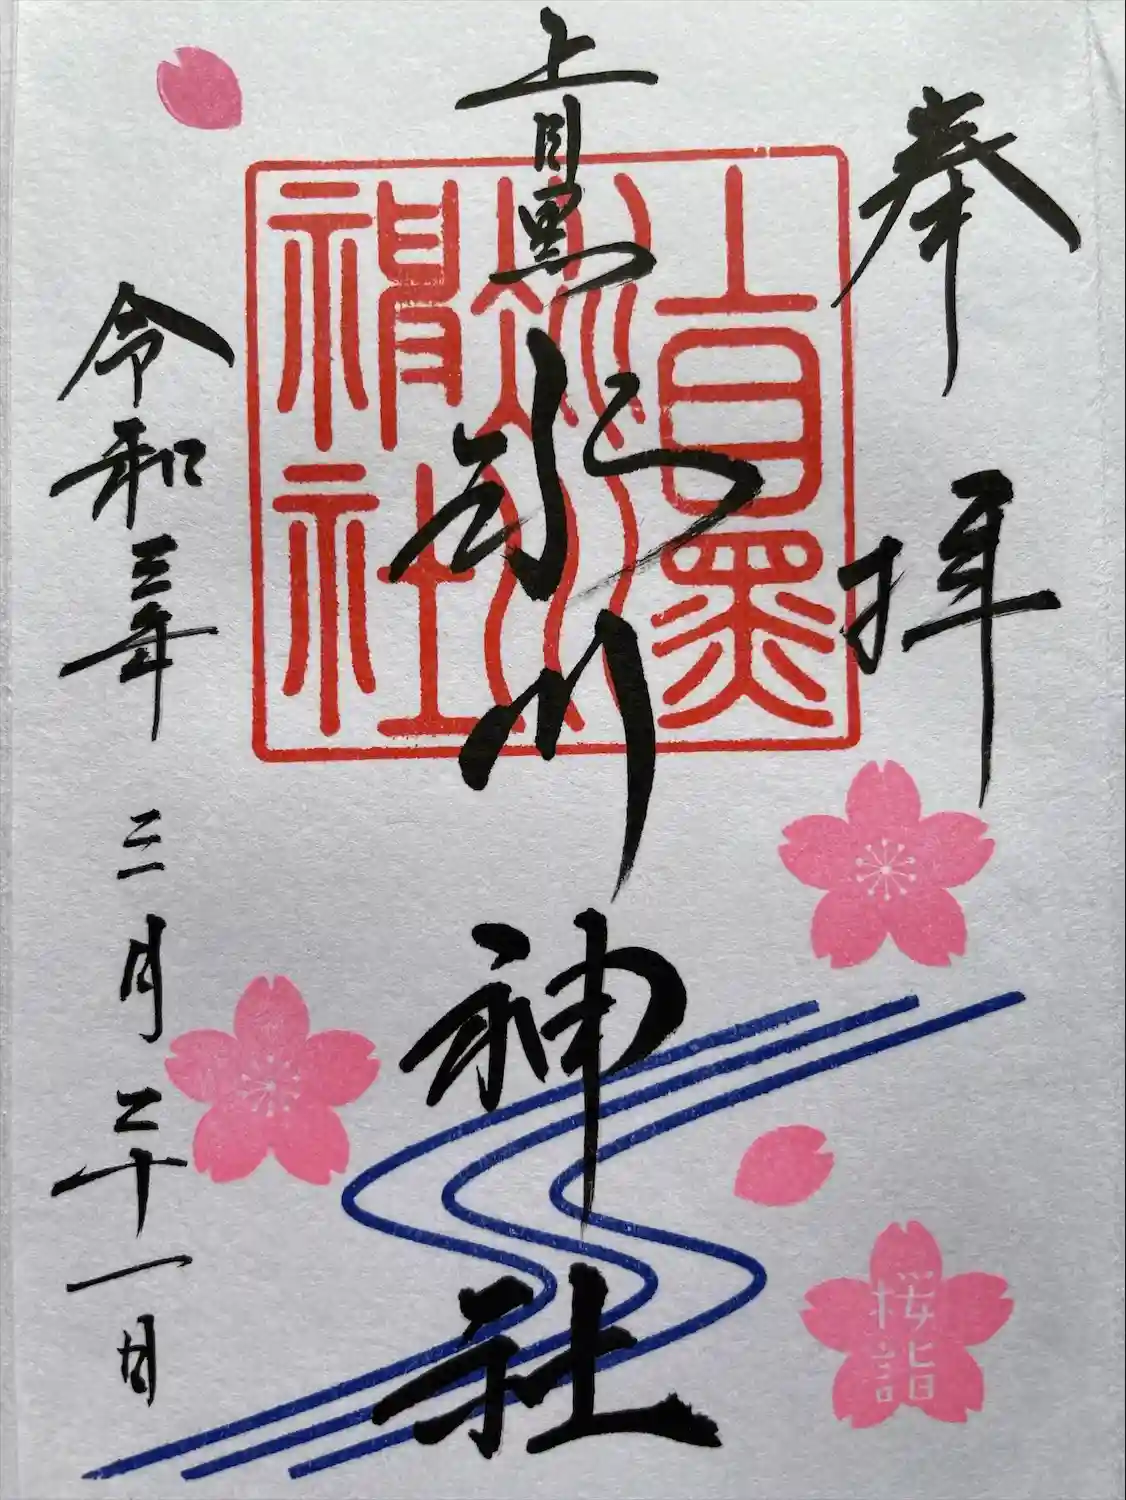 奉拝
上目黒
氷川神社
上目黒
氷川
神社
令和三年三月二十一日
桜詣